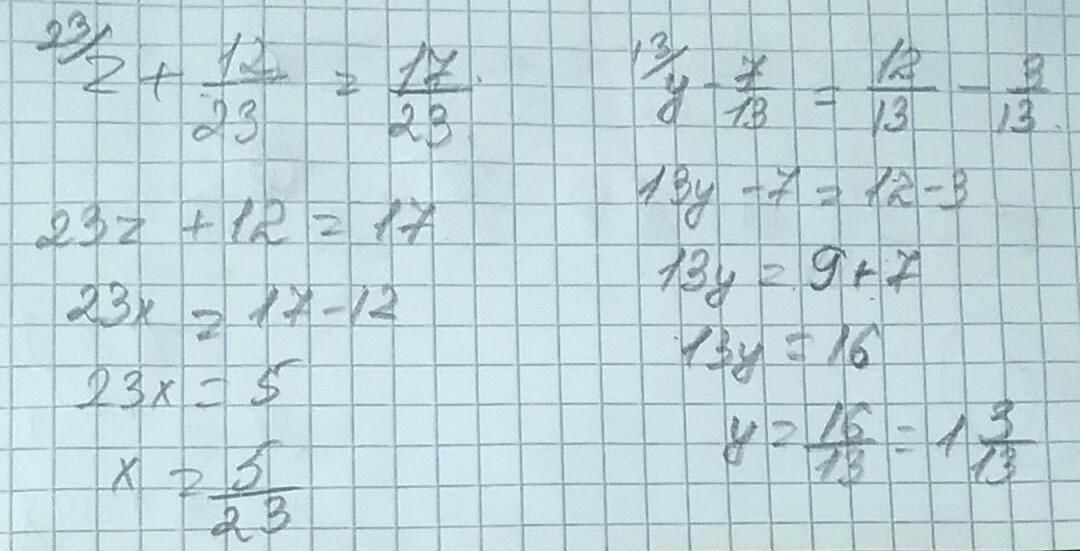 23/ z + 12/23 = 17/23
23z + 12 = 17
23x = 17 - 12
23x = 5
x = 5/23
13/ y - 7/13 = 12/13 - 3/13.
13y - 7 = 12 - 3
13y = 9 + 7
13y = 16
y = 16/13 = 1 3/13